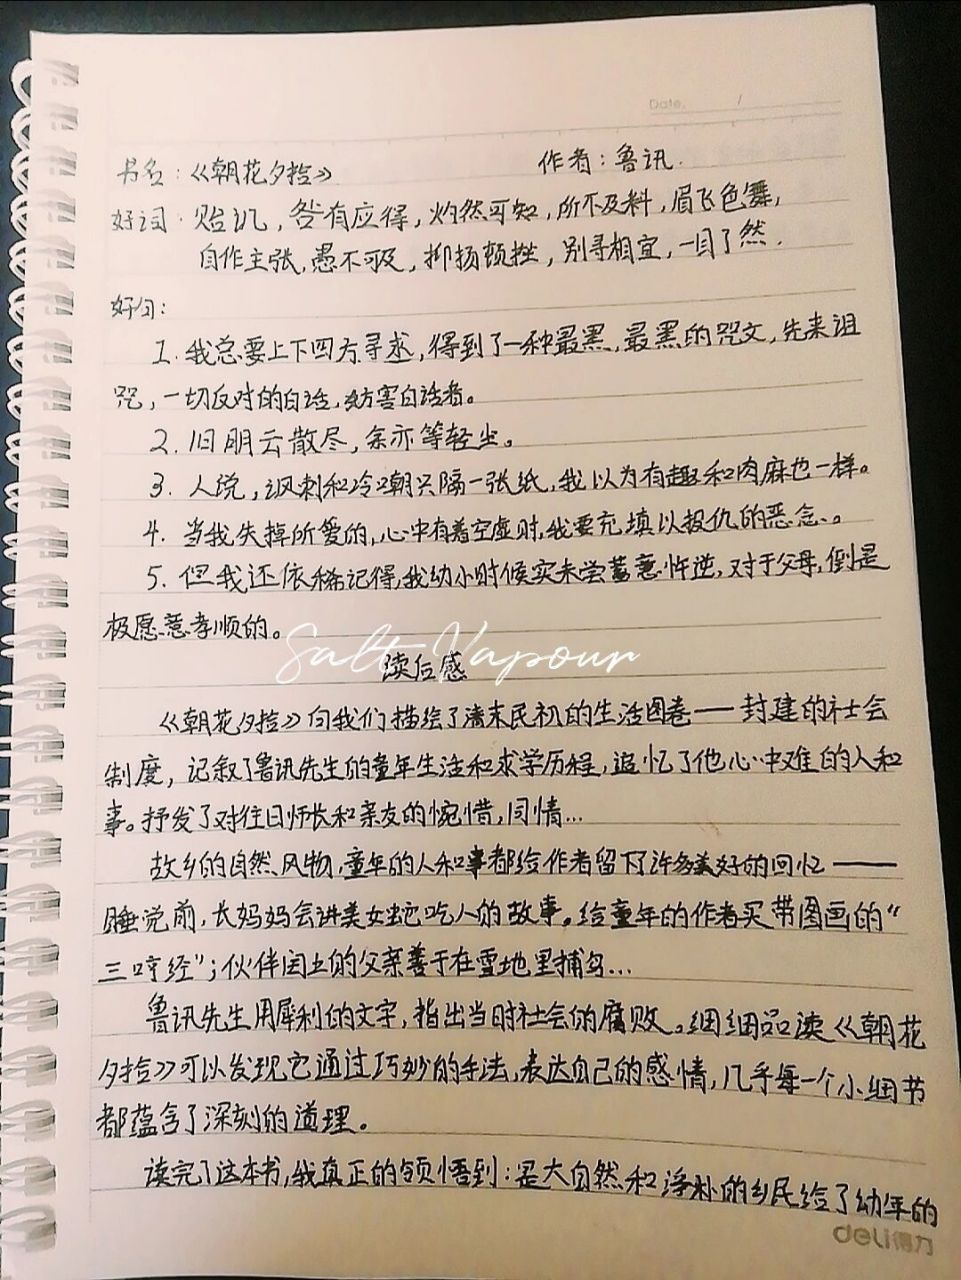 Date. /
书名：《朝花夕拾》 作者：鲁迅.
好词：贻讥，咎有应得，灼然可知，所不及料，眉飞色舞，
自作主张，愚不可及，抑扬顿挫，别寻相宜，一目了然.
好句：
1. 我总要上下四方寻求，得到了一种最黑，最黑的咒文，先来诅
咒，一切反对的白话，妨害白话者。
2. 旧朋云散尽，余亦等轻尘。
3. 人说，讽刺和冷嘲只隔一张纸，我以为有趣和肉麻也一样。
4. 当我失掉所爱的，心中有着空虚时，我要充填以报仇的恶念。
5. 但我还依稀记得，我幼小时候实未尝蓄意忤逆，对于父母，倒是
极愿意孝顺的。
Salt Vapour
读后感
《朝花夕拾》向我们描绘了清末民初的生活图卷——封建的社会
制度，记叙了鲁迅先生的童年生活和求学历程，追忆了他心中难的人和
事。抒发了对往日师长和亲友的惋惜，同情...
故乡的自然、风物，童年的人和事都给作者留下了许多美好的回忆——
睡觉前，长妈妈会讲美女蛇吃人的故事。给童年的作者买带图画的“
三哼经”；伙伴闰土的父亲善于在雪地里捕鸟...
鲁迅先生用犀利的文字，指出当时社会的腐败。细细品读《朝花
夕拾》可以发现它通过巧妙的手法，表达自己的感情，几乎每一个小细节
都蕴含了深刻的道理。
读完了这本书，我真正的领悟到：是大自然和淳朴的乡民给了幼年的
deli得力